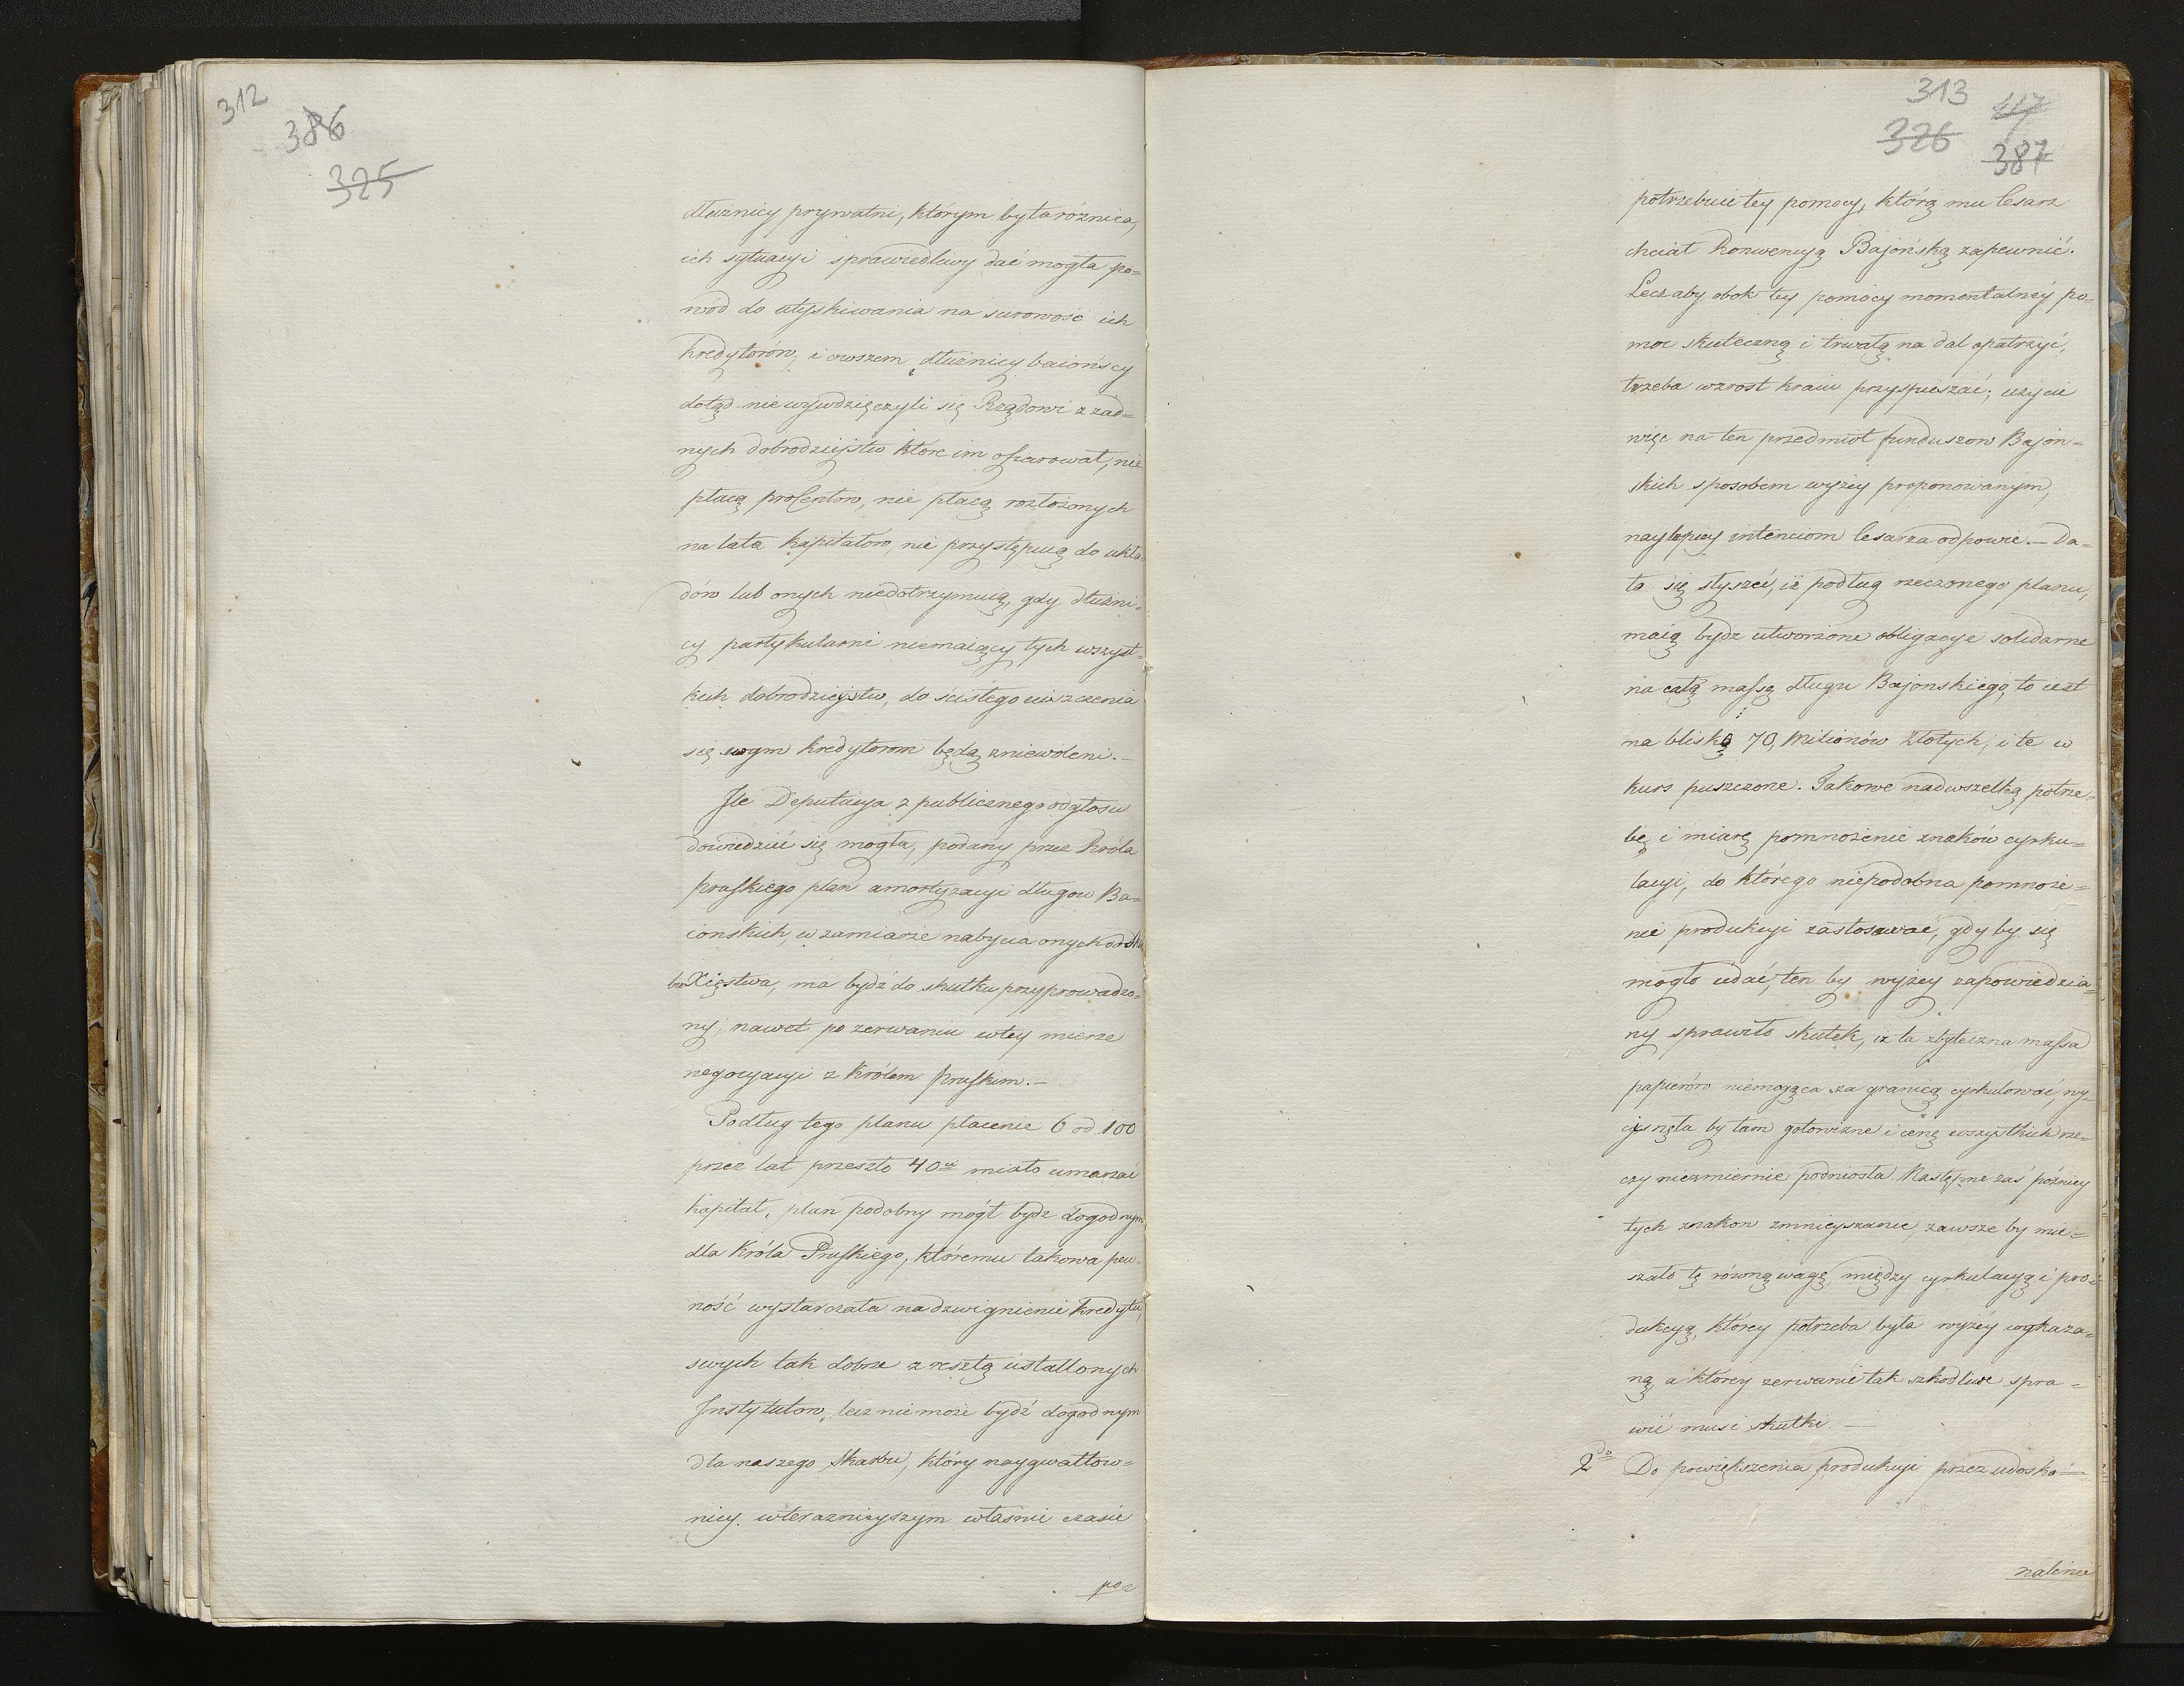 312
386
325
dłużnicy prywatni, którym była różnica,
ich sytuacyi sprawiedliwy dać mogła po=
wód do utyskiwania na surowość ich
kredytorów, i owszem dłużnicy baiońscy
dotąd niewywdzięczyli się Rządowi z żad=
nych dobrodzieystw które im ofiarował, nie
płacą procentow, nie płacą rozłożonych
na lata kapitałow, nie przystępuią do ukła=
dów lub onych niedotrzymuią, gdy dłużni=
cy partykularni niemaiący tych wszyst=
kich dobrodzieystw, do ścisłego uiszczenia
się swym kredytorom będą zniewoleni.—
Ile Deputacya z publicznego odgłosu
dowiedzieć się mogła, podany przez Króla
pruskiego plan amortyzacyi długow Ba=
ionskich, w zamiarze nabycia onych od Skar
bu Xięstwa, ma bydź do skutku przyprowadzo=
ny, nawet po zerwaniu wtey mierze
negocyacyi z Królem pruskim.—
Podług tego planu płacenie 6 od 100
przez lat przeszło 40ci miało umarzać
kapitał, plan podobny mógł bydz dogodnym
dla Króla Pruskiego, któremu takowa pew=
ność wystarczała na dzwignienie kredytu,
swych tak dobrze zresztą ustallonych
Instytutow, lecz nie może bydź dogodnym
dla naszego Skarbu, który naygwałtow=
niey wterazniejszym własnie czasie
po=
313
417
326
387
potrzebuie tey pomocy, którą mu Cesarz
chciał Konwencyą Bajońską zapewnić.
Lecz aby obok tey pomocy momentalnéy po=
moc skuteczną i trwałą na dal opatrzyć,
trzeba wzrost kraiu przyspieszać; użycie
więc na ten przedmiot funduszow Bajon=
skich sposobem wyżey proponowanym,
naylepiey intenciom Cesarza odpowie.— Da=
ło się słyszeć, iż podług rzeczonego planu,
maią bydz utworzone obligacye solidarne
na całą massę długu Bajonskiego, to iest
na blisko 70, Milionów Złotych, i te w
kurs puszczone. Takowe nadwszelką potrze=
bę i miarę pomnożenie znaków cyrku=
lacyi, do którego niepodobna pomnoże=
nie produkcyi zastosować, gdy by się
mogło udać, ten by wyżey zapowiedzia=
ny sprawiło skutek, iż ta zbyteczna massa
papierów niemogąca za granicą cyrkulować, wy=
cisnęła by tam gotowiznę i cenę wszystkich rze=
czy niezmiernie podniosła. Następne zaś późniey
tych znakow zmnieyszanie, zawsze by mie=
szało tę równą wagę, między cyrkulacyą i pro=
dukcyą, którey potrzeba była wyżéy wykaza=
ną, a którey zerwanie tak szkodliwe spra=
wić musi skutki.—
2do Do powiększenia produkcyi przez udosko=
nalenie